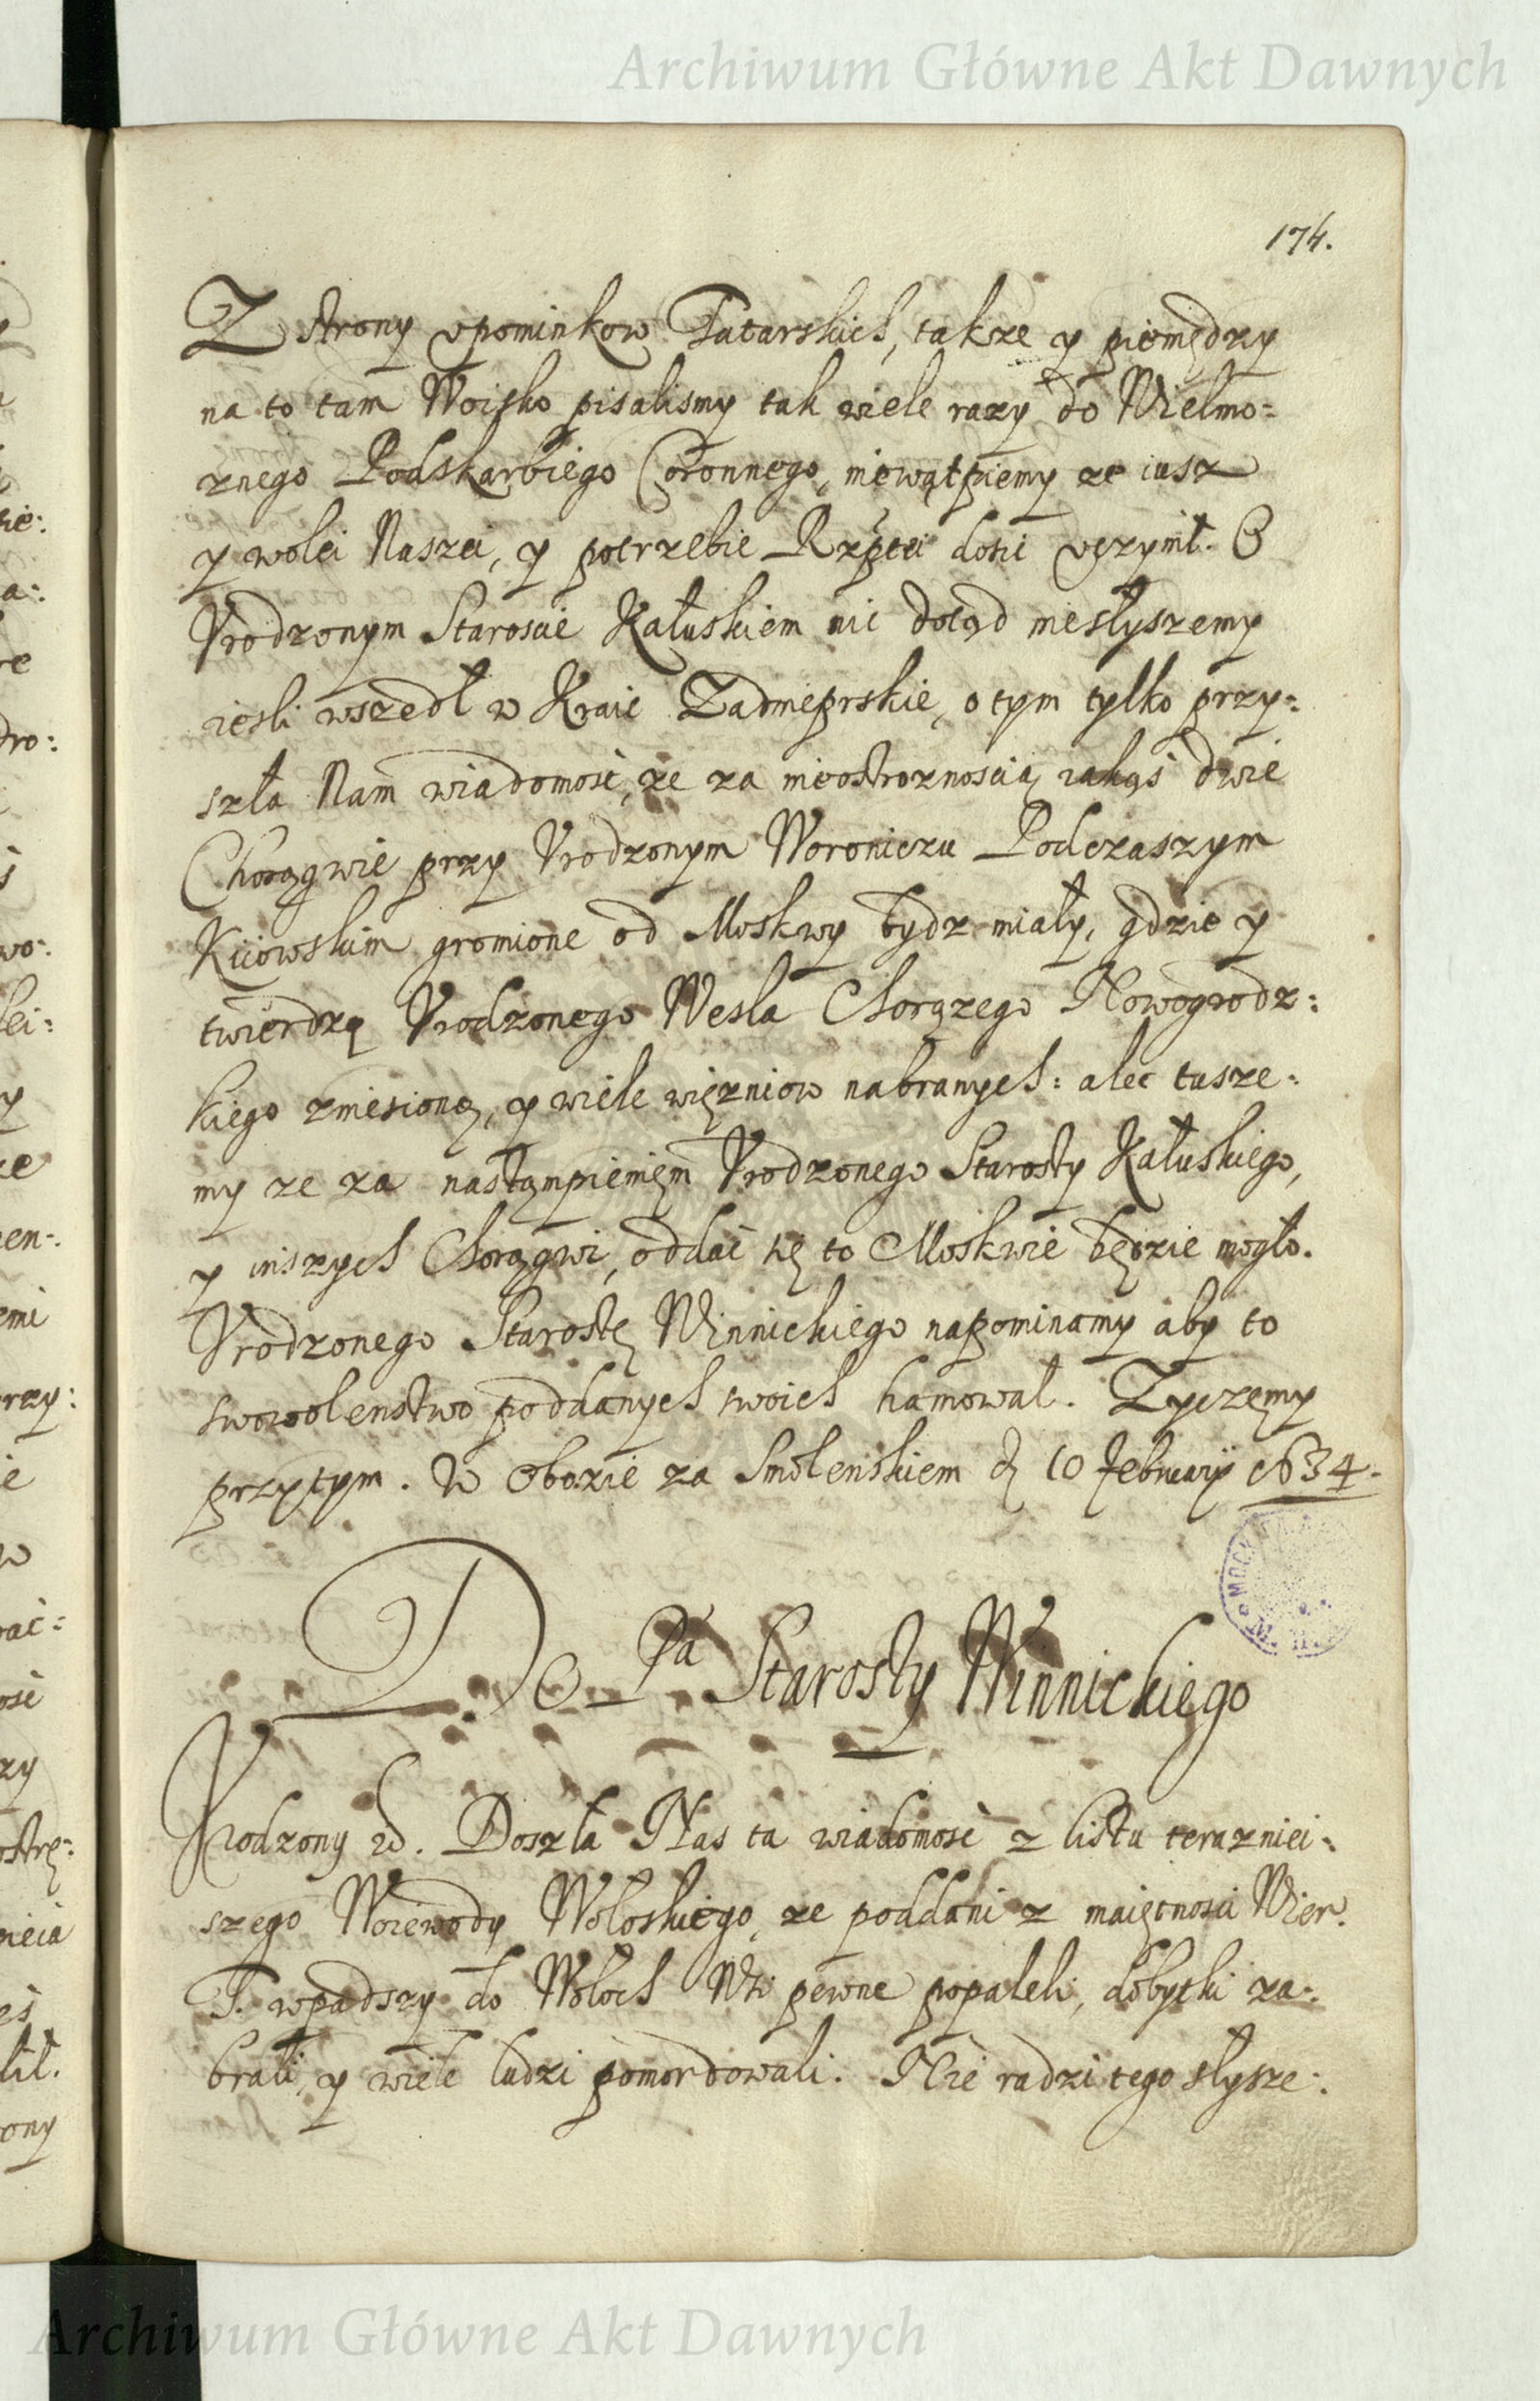 Archiwum Główne Akt Dawnych
174.
Z strony vpominkow Tatarskich, takze y pieniędzy
na to tam Woisko pisalismy tak wiele razy do Wielmo=
znego Podskarbiego Coronnego, niewątpiemy ze iusz
y wolei Naszei, y potrzebie Rzptei dosić vczynił. O
Vrodzonym Staroscie Kałuskiem nic dotąd niesłyszemy
iesli wszedł w Kraie Zadnieprskie, o tym tylko przy=
szła Nam wiadomość, ze za nieostroznoscią iakąś dwie
Chorągwie przy Vrodzonym Woroniczu Podczaszym
Kiiowskim gromione od Moskwy bydz miały, gdzie y
twierdzą Vrodzonego Wesla Chorązego Nowogrodz=
kiego zniesiono, y wiele więzniow nabranych: alec tusze=
my ze za nastąmpieniem Vrodzonego Starosty Kałuskiego,
y inszych Chorągwi, oddać się to Moskwie będzie mogło.
Vrodzonego Starostę Winnickiego napominamy aby to
swowolenstwo poddanych swoich hamował. Zyczemy
przytym. W Obozie za Smolenskiem d 10 February 1634.
Do Pa Starosty Winnickiego
Vrodzony Doszła Nas ta wiadomość z listu terazniei=
szego Woiewody Wołoskiego, ze poddani z maiętnosci Wier.
T. wpadszy do Wołoch Wsi pewne popaleli, dobytki za=
brali, y wiele ludzi pomordowali. Nie radzi tego słysze=
Archiwum Główne Akt Dawnych